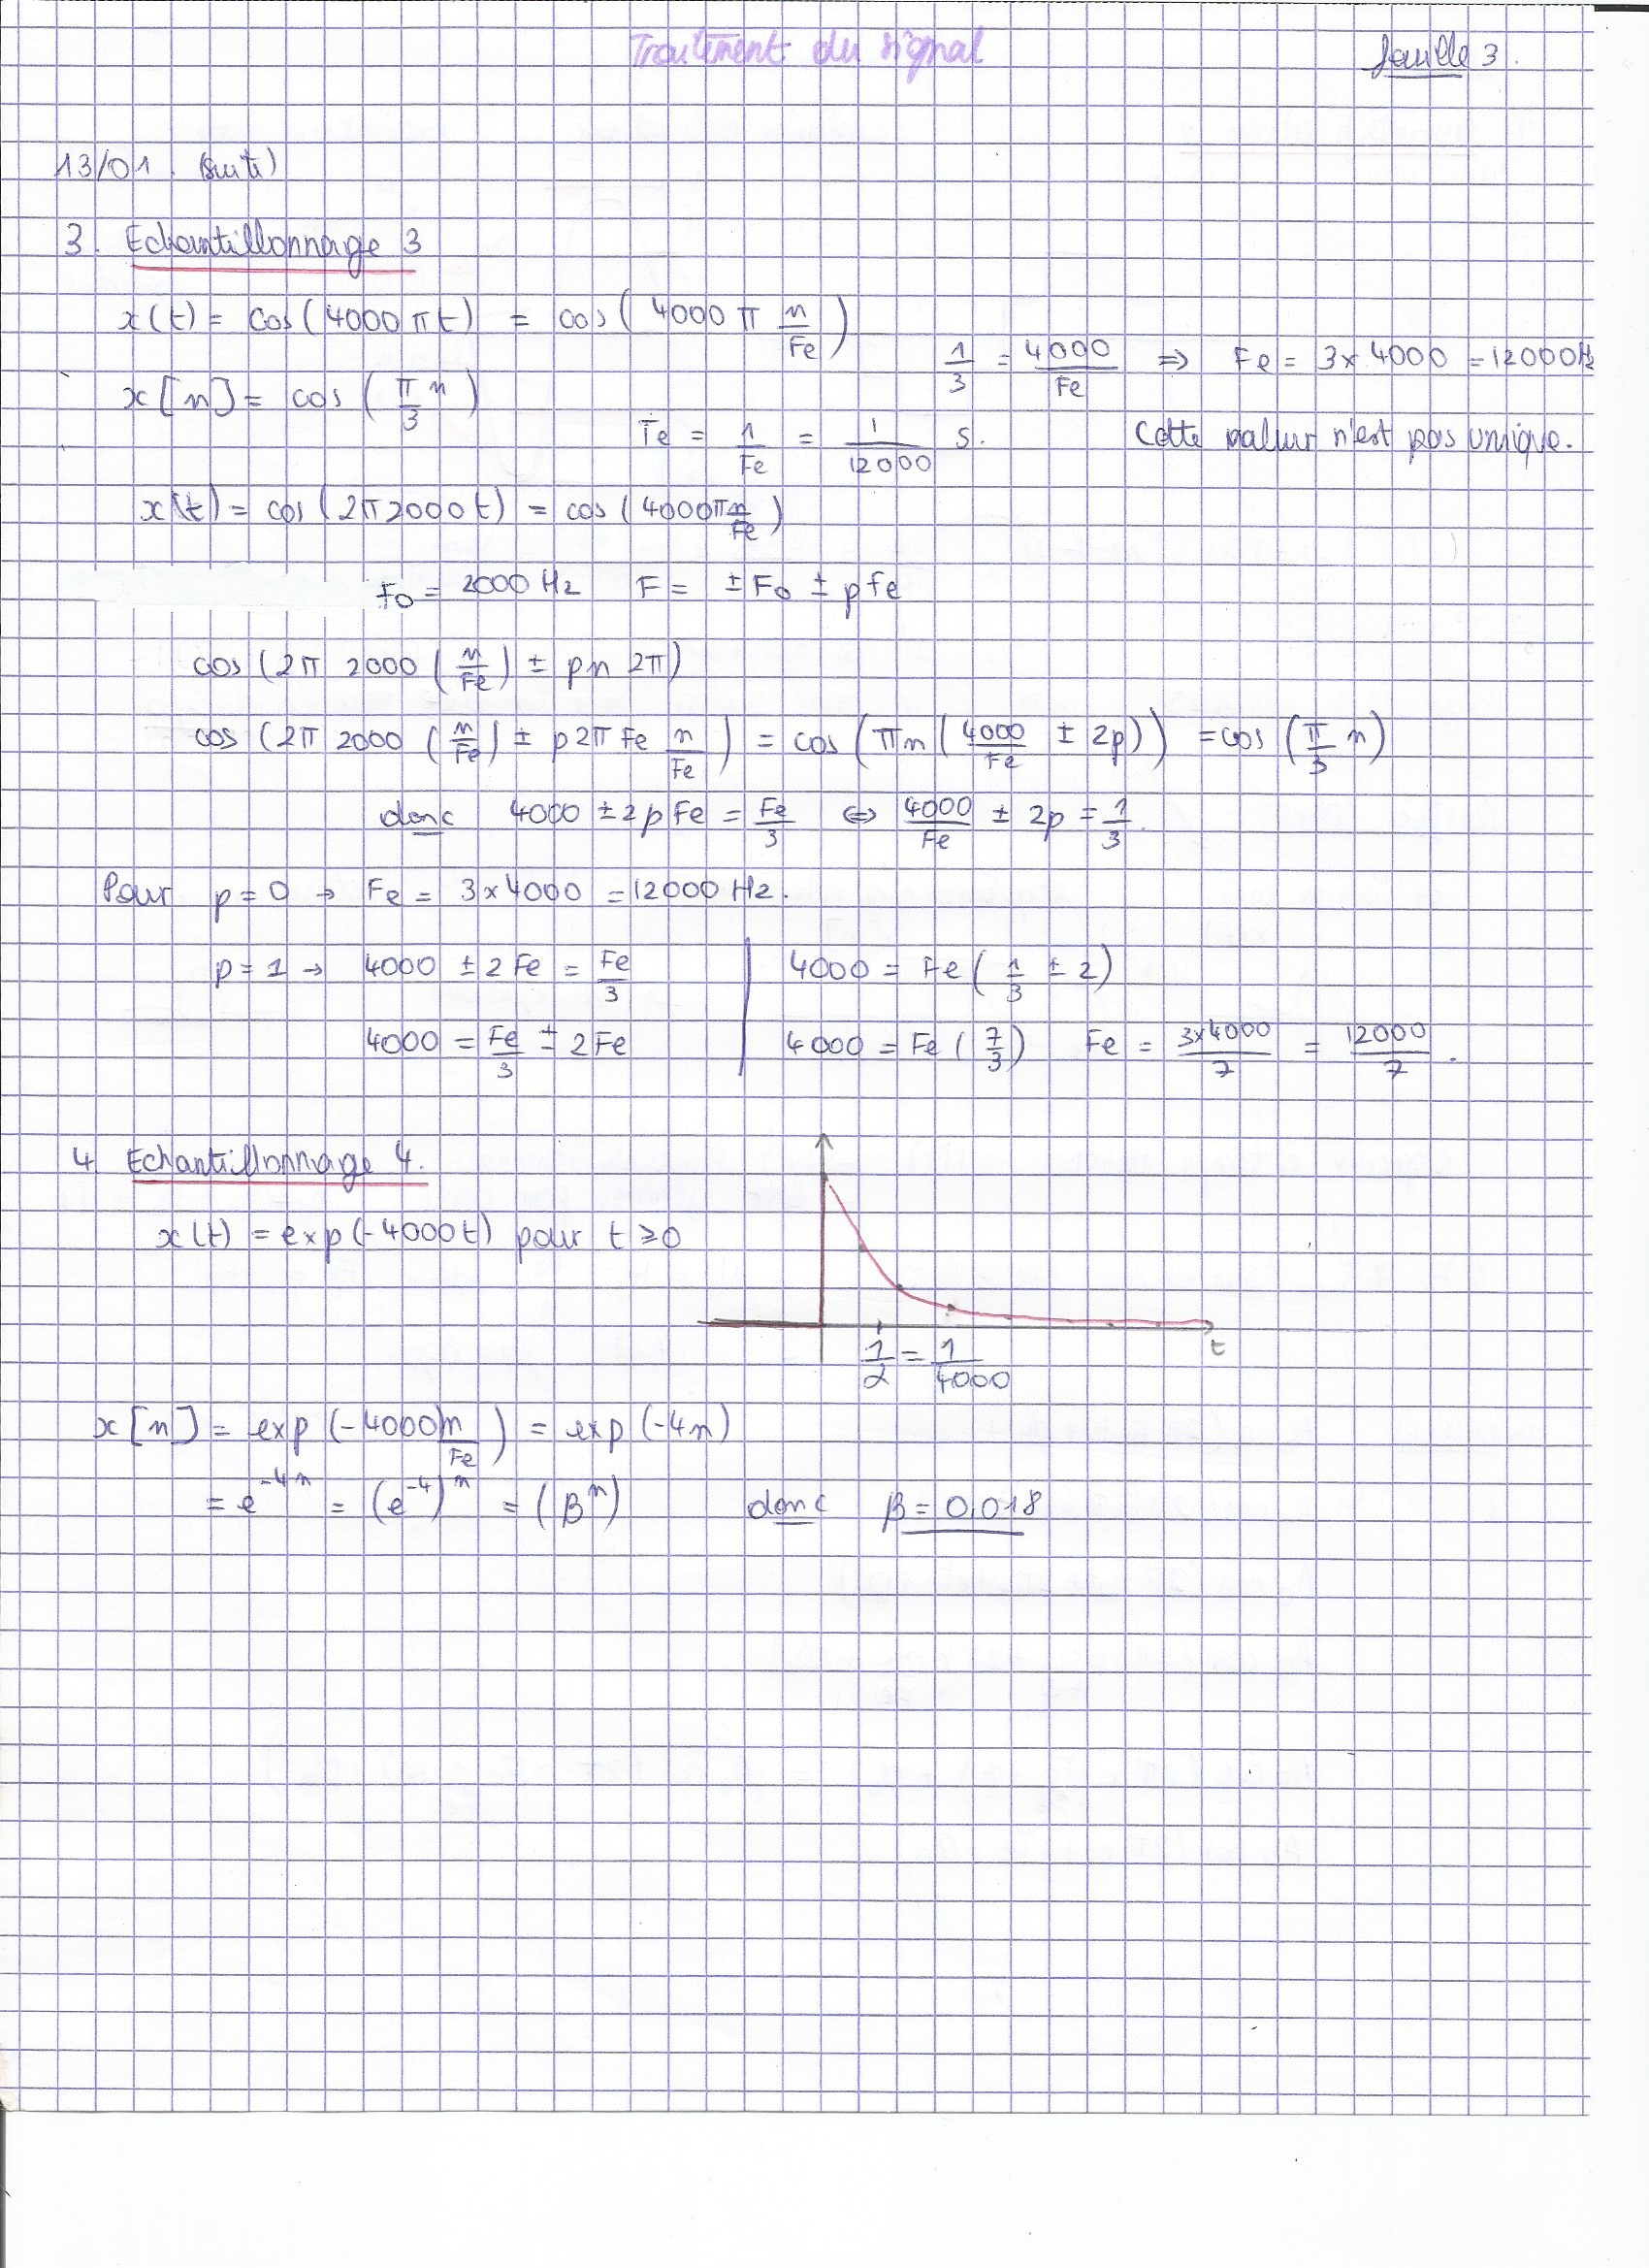 Traitement du signal
feuille 3.
13/01. (suite)
3. Echantillonnage 3
x(t) = cos(4000πt) = cos(4000π n/Fe)
1/3 = 4000/Fe ⇒ Fe = 3×4000 = 12000Hz
x[n] = cos(π/3 n)
Te = 1/Fe = 1/12000 s. Cette valeur n'est pas unique.
x(t) = cos(2π2000t) = cos(4000π n/Fe)
F0 = 2000 Hz F = ±F0 ± pfe
cos(2π 2000 (n/Fe) ± pn 2π)
cos(2π 2000 (n/Fe) ± p2π Fe n/Fe) = cos(πn(4000/Fe ± 2p)) = cos(π/3 n)
donc 4000 ± 2pFe = Fe/3 ⇔ 4000/Fe ± 2p = 1/3.
Pour p = 0 → Fe = 3×4000 = 12000 Hz.
p = 1 → 4000 ± 2Fe = Fe/3 | 4000 = Fe(1/3 ± 2)
4000 = Fe/3 ± 2Fe | 4000 = Fe(7/3) Fe = 3×4000/7 = 12000/7.
4 Echantillonnage 4.
x(t) = exp(-4000t) pour t ≥ 0
t
1/α = 1/4000
x[n] = exp(-4000)n/Fe) = exp(-4n)
= e^-4n = (e^-4)^n = (β^n) donc β = 0,018